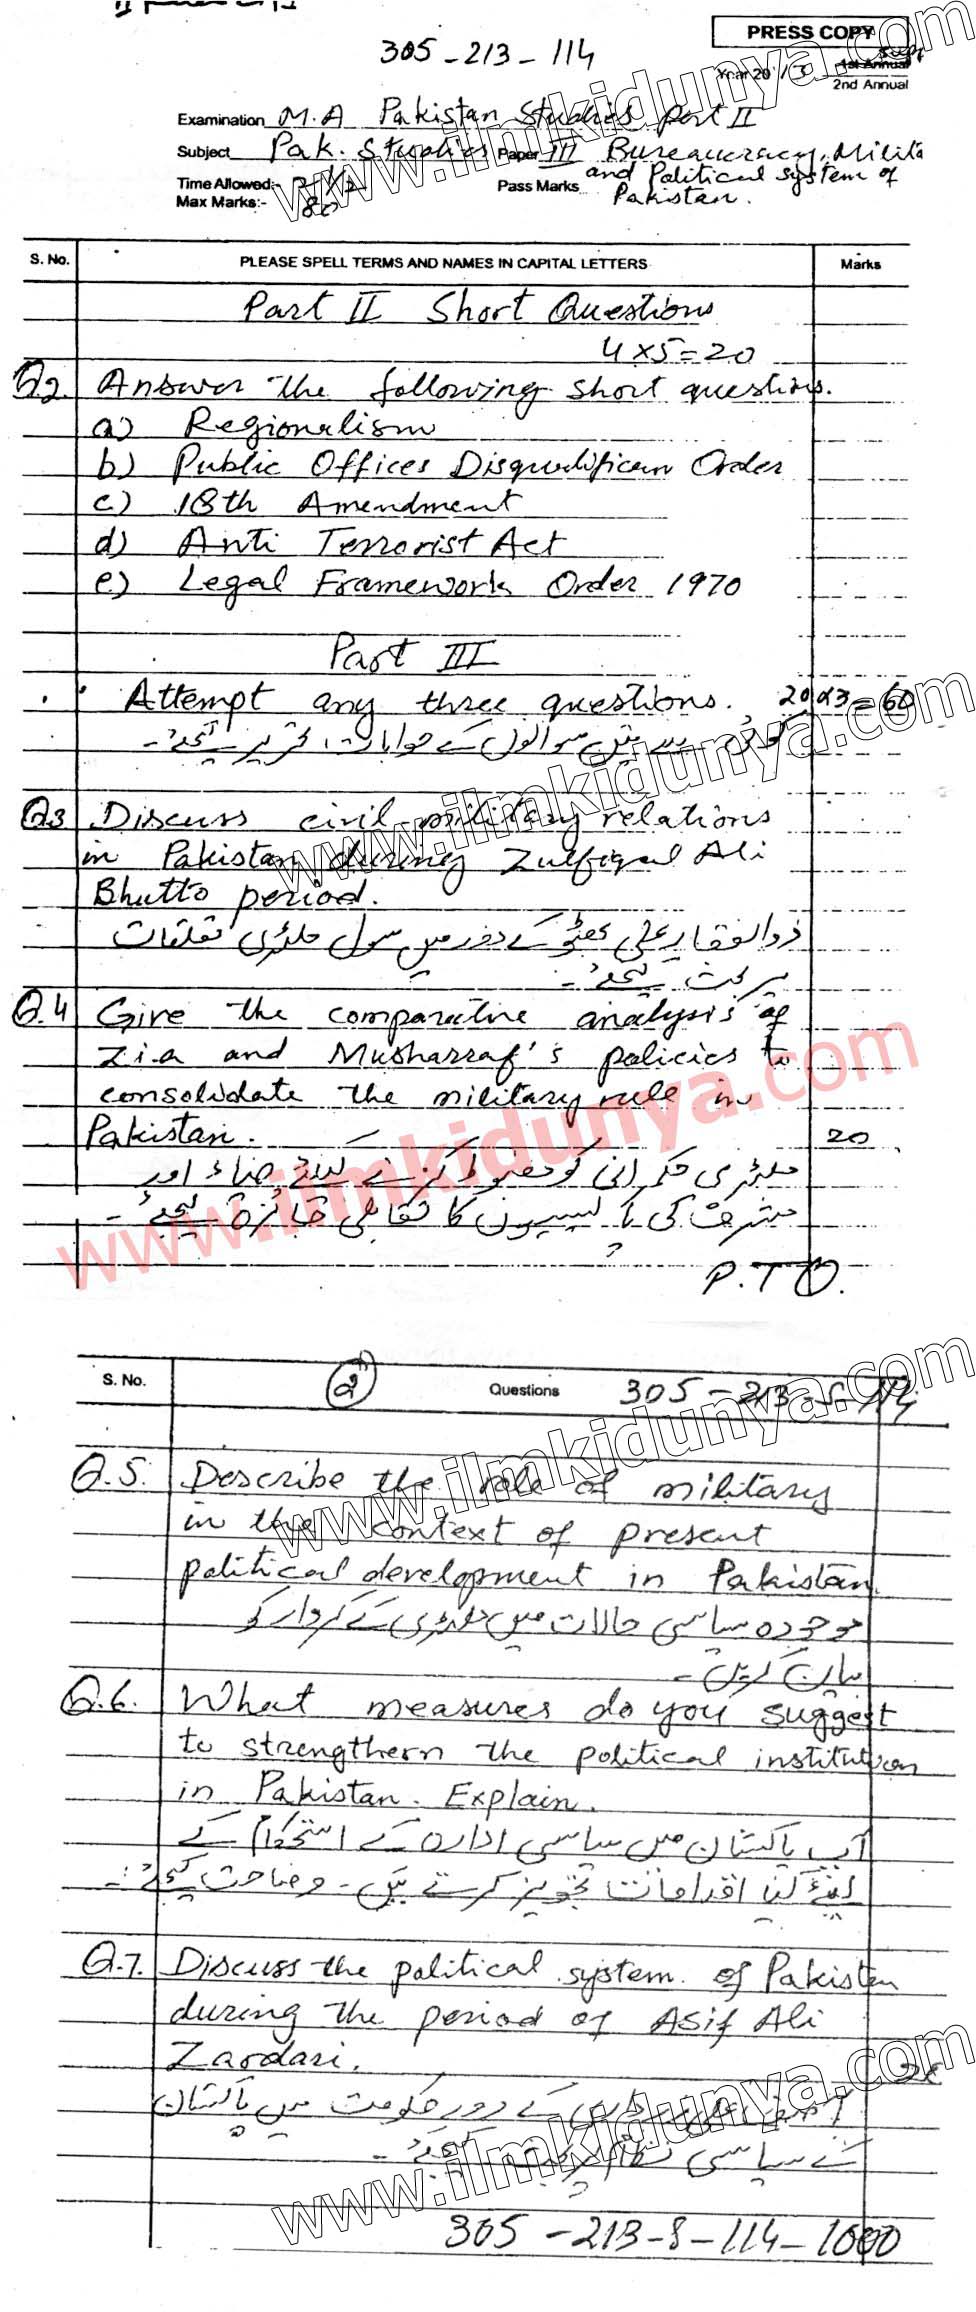 305-213-114
PRESS COPY
Year 2013 Supp 1st Annual
2nd Annual
Examination M.A Pakistan Studies Part II
Subject Pak. Studies Paper III Bureaucracy, Milita
and Political system of
Pakistan.
Time Allowed:- 2 1/2 Pass Marks
Max Marks:- 80
S. No. PLEASE SPELL TERMS AND NAMES IN CAPITAL LETTERS Marks
Part II Short Questions
4x5=20
Q2. Answer the following short questions.
a) Regionalism
b) Public Offices Disqualification Order
c) 18th Amendment
d) Anti Terrorist Act
e) Legal Framework Order 1970
Part III
Attempt any three questions. 20x3=60
کوئی سے تین سوالوں کے جوابات تحریر کیجئے۔
Q3 Discuss civil-military relations
in Pakistan during Zulfiqal Ali
Bhutto period.
ذوالفقار علی بھٹو کے دور میں سول ملٹری تعلقات
پر بحث کیجئے۔
Q.4 Give the comparative analysis of
Zia and Musharraf's policies to
consolidate the military rule in
Pakistan. 20
ملٹری حکمرانی کو مضبوط کرنے کیلئے ضیاء اور
مشرف کی پالیسیوں کا تقابلی جائزہ لیجئے۔
P.T.O.
S. No. 2 Questions 305-213-S-114
Q.5. Describe the role of military
in the context of present
political development in Pakistan.
موجودہ سیاسی حالات میں ملٹری کے کردار کو
بیان کریں۔
Q.6. What measures do you suggest
to strengthern the political institution
in Pakistan. Explain.
آپ پاکستان میں سیاسی ادارہ کے استحکام کے
لیئے کیا اقدامات تجویز کرتے ہیں۔ وضاحت کیجئے۔
Q.7. Discuss the political system of Pakistan
during the period of Asif Ali
Zardari.
آصف علی زرداری کے دور حکومت میں پاکستان
کے سیاسی نظام پر بحث کیجئے۔
305-213-S-114-1000
www.ilmkidunya.com
www.ilmkidunya.com
www.ilmkidunya.com
www.ilmkidunya.com
www.ilmkidunya.com